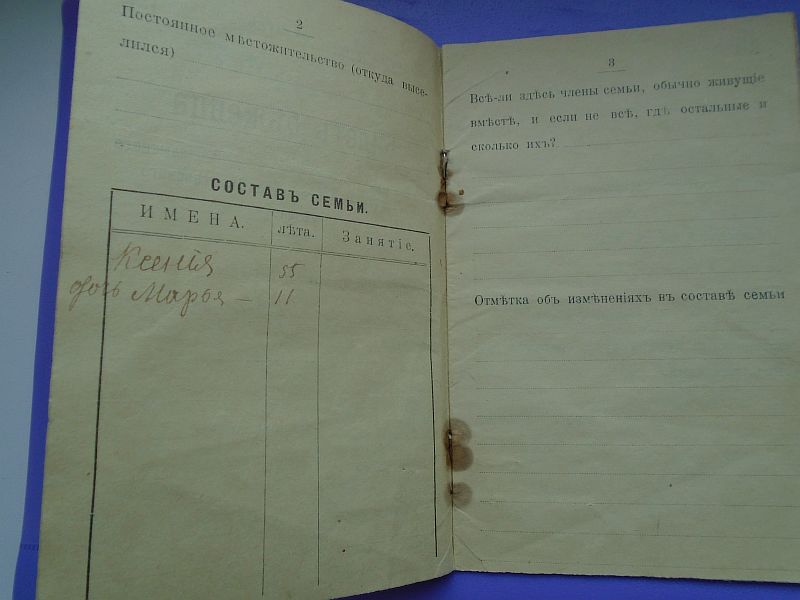 2
Постоянное мѣстожительство (откуда высе-
лился)
СОСТАВЪ СЕМЬИ.
ИМЕНА. лѣта. Занятіе.
Ксенія 55
дочь Марья — 11
3
Всѣ-ли здѣсь члены семьи, обычно живущіе
вмѣстѣ, и если не всѣ, гдѣ остальные и
сколько ихъ?
Отмѣтка объ измѣненіяхъ въ составѣ семьи